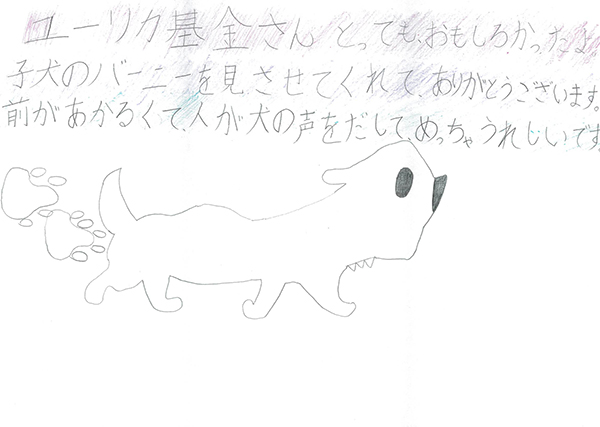 ユーリカ基金さん とってもおもしろかったよ。
子犬のバーニーを見させてくれて、ありがとうございます。
前があかるくて、人が犬の声をだして、めっちゃうれしいです。